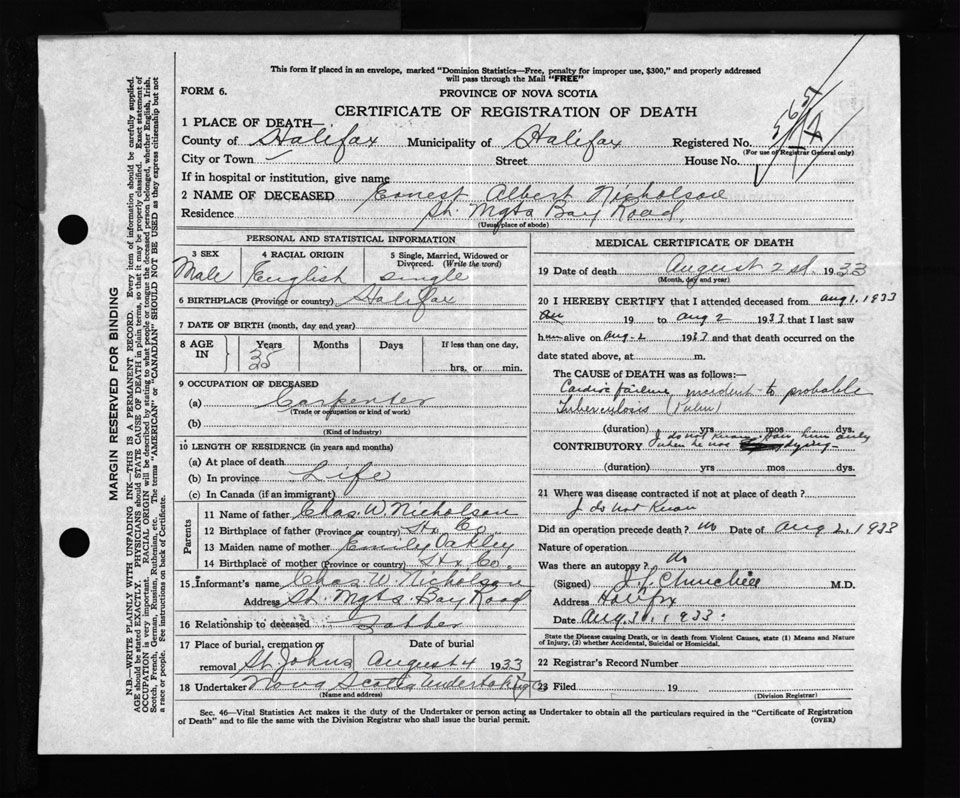 This form if placed in an envelope, marked "Dominion Statistics—Free, penalty for improper use, $300," and properly addressed
will pass through the Mail "FREE"
FORM 6.
PROVINCE OF NOVA SCOTIA
CERTIFICATE OF REGISTRATION OF DEATH
1 PLACE OF DEATH—
County of Halifax Municipality of Halifax Registered No.
(For use of Registrar General only)
City or Town Street House No.
If in hospital or institution, give name
2 NAME OF DECEASED Ernest Albert Nicholson
Residence St. Mgts Bay Road.
(Usual place of abode)
PERSONAL AND STATISTICAL INFORMATION
3 SEX 4 RACIAL ORIGIN 5 Single, Married, Widowed or
Divorced. (Write the word)
Male English Single
6 BIRTHPLACE (Province or country) Halifax
7 DATE OF BIRTH (month, day and year)
8 AGE IN Years Months Days If less than one day,
35 hrs. or min.
9 OCCUPATION OF DECEASED
(a) Carpenter
(Trade or occupation or kind of work)
(b)
(Kind of industry)
10 LENGTH OF RESIDENCE (in years and months)
(a) At place of death
(b) In province Life
(c) In Canada (if an immigrant)
Parents
11 Name of father Chas. W. Nicholson
12 Birthplace of father (Province or country) Hx Co
13 Maiden name of mother Emily Oakley
14 Birthplace of mother (Province or country) Hx Co.
15 Informant's name Chas. W. Nicholson
Address St. Mgts Bay Road
16 Relationship to deceased Father
17 Place of burial, cremation or Date of burial
removal St. Johns August 4 1933
18 Undertaker Nova Scotia Undertaking Co
(Name and address)
MEDICAL CERTIFICATE OF DEATH
19 Date of death August 2nd. 1933
(Month, day and year)
20 I HEREBY CERTIFY that I attended deceased from Aug 1, 1933
19 to Aug 2 1933 that I last saw
him alive on Aug. 2 1933 and that death occurred on the
date stated above, at m.
The CAUSE of DEATH was as follows:—
Cardiac failure incident to probable
Tuberculosis (Pulm)
(duration) yrs mos dys.
I do not know. Saw him only
CONTRIBUTORY when he was dying
(duration) yrs mos dys.
21 Where was disease contracted if not at place of death?
I do not know
Did an operation precede death? No Date of Aug 2, 1933
Nature of operation
Was there an autopsy? No
(Signed) J. J. Churchill M.D.
Address Halifax
Date Aug. 1933.
State the Disease causing Death, or in death from Violent Causes, state (1) Means and Nature
of Injury, (2) whether Accidental, Suicidal or Homicidal.
22 Registrar's Record Number
23 Filed 19
(Division Registrar)
Sec. 46—Vital Statistics Act makes it the duty of the Undertaker or person acting as Undertaker to obtain all the particulars required in the "Certificate of Registration
of Death" and to file the same with the Division Registrar who shall issue the burial permit. (OVER)
MARGIN RESERVED FOR BINDING
N.B.—WRITE PLAINLY WITH UNFADING INK—THIS IS A PERMANENT RECORD. Every item of information should be carefully supplied.
AGE should be stated EXACTLY. PHYSICIANS should STATE CAUSE OF DEATH in plain terms, so that it may be properly classified. Exact statement of
OCCUPATION is very important. RACIAL ORIGIN will be described by stating to what people or tongue the deceased person belonged, whether English, Irish,
Scotch, French, German, Russian, Ruthenian, etc. The terms "AMERICAN" or "CANADIAN" SHOULD NOT BE USED as they express citizenship but not
a race or people. See instructions on back of Certificate.